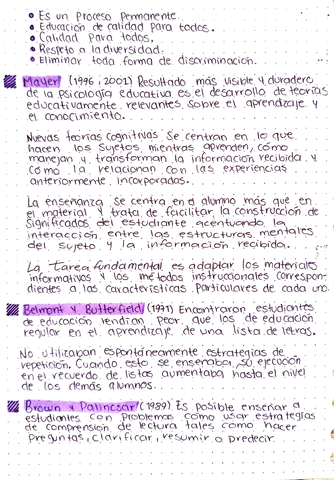 • Es un Proceso Permanente.
• Educación de calidad para todos.
• Calidad Para todos.
• Respeto a la diversidad.
• Eliminar toda forma de discriminación.
Mayer (1996, 2001) Resultado más visible y duradero
de la Psicología educativa es el desarrollo de teorías
educativamente relevantes sobre el aprendizaje y
el conocimiento.
Nuevas teorías Cognitivas Se centran en lo que
hacen los sujetos, mientras aprenden, cómo
manejan y transforman la información recibida y
cómo la relacionan con las experiencias
anteriormente incorporadas.
La enseñanza se centra en el alumno más que en
el material y trata de facilitar la construcción de
Significados del estudiante, acentuando la
interacción entre las estructuras mentales
del sujeto y la información recibida.
La tarea fundamental es adaptar los materiales
informativos y los métodos instruccionales correspon-
dientes a las características particulares de cada uno.
Belmont y Butterfield (1971) Encontraron estudiantes
de educación rendían peor que los de educación
regular en el aprendizaje de una lista de letras.
No utilizaban espontáneamente estrategias de
repetición. Cuando esto se enseñaba, su ejecución
en el recuerdo de listas aumentaba hasta el nivel
de los demás alumnos.
Brown y Palincsar (1989) Es posible enseñar a
estudiantes con problemas cómo usar estrategias
de comprensión de lectura tales como hacer
Preguntas, clarificar, resumir o predecir.